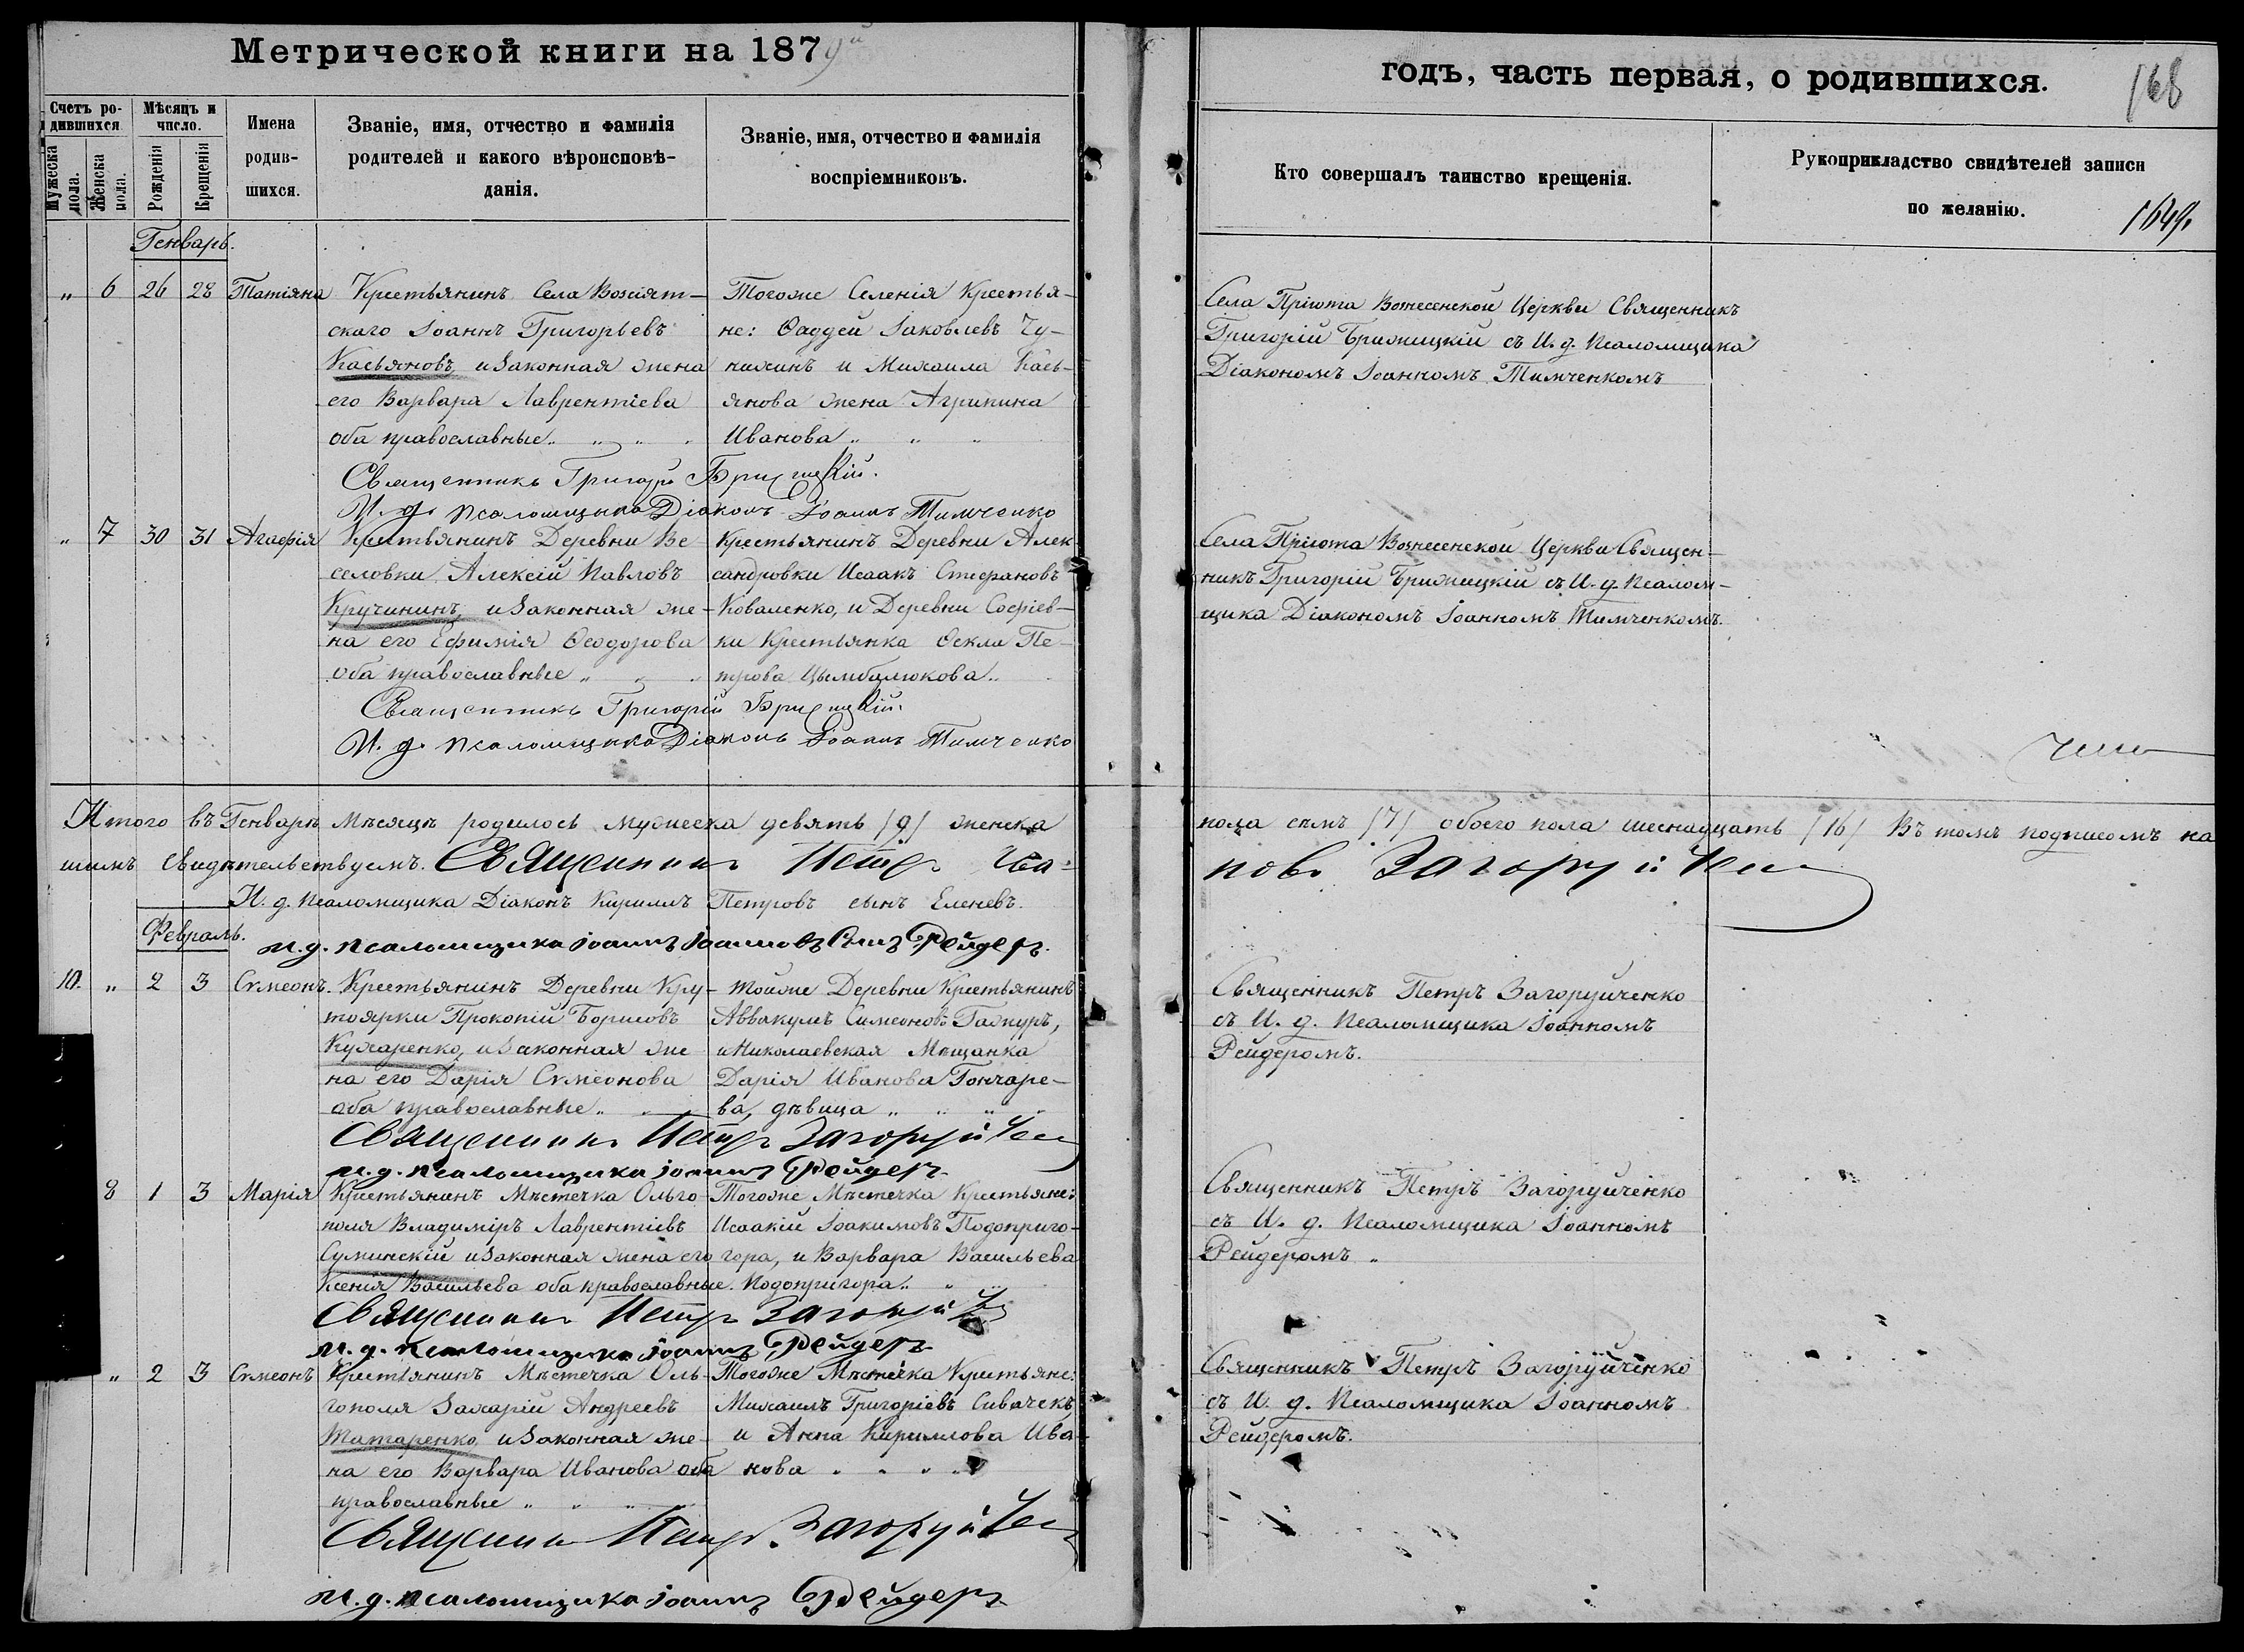 Метрической книги на 1879й
годъ, часть первая, о родившихся.
168
Счетъ родившихся.
Мужеска пола.
Женска пола.
Мѣсяцъ и число.
Рожденія
Крещенія
Имена родившихся.
Званіе, имя, отчество и фамилія
родителей и какого вѣроисповѣ-
данія.
Званіе, имя, отчество и фамилія
воспріемниковъ.
Кто совершалъ таинство крещенія.
Рукоприкладство свидѣтелей записи
по желанію.
1649.
Генварь.
„ 6 26 28 Татіяна
Крестьянинъ Села Возсіят-
скаго Іоаннъ Григорьевъ
Касьяновъ, и законная жена
его Варвара Лаврентіева
оба православные „ „ „
Тогоже Селенія Крестья-
не: Ѳаддей Іаковлевъ Чу-
нихинъ и Михаила Кась-
янова жена Агрипина
Иванова „ „ „
Священникъ Григорій Брижицкій.
И. д. псаломщика Діаконъ Іоаннъ Тимченко
Села Пріюта Вознесенской Церкви Священникъ
Григорій Брижицкій съ И. д. Псаломщика
Діакономъ Іоанномъ Тимченкомъ
„ 7 30 31 Агафія
Крестьянинъ Деревни Ве
селовки Алексій Павловъ
Кручининъ, и законная же-
на его Ефимія Ѳеодорова
оба православные „ „ „
Крестьянинъ Деревни Алек
сандровки Исаакъ Стефановъ
Коваленко, и Деревни Софіев-
ки Крестьянка Ѳекла Пе-
трова Цымбалюкова „
Священникъ Григорій Брижицкій.
И. д. псаломщика Діаконъ Іоаннъ Тимченко
Села Пріюта Вознесенской Церкви Священ-
никъ Григорій Брижицкій съ И. д. Псалом-
щика Діакономъ Іоанномъ Тимченкомъ.
Итого въ Генварѣ Мѣсяцѣ родилось мужеска девять /9/ женска
пола семь /7/ обоего пола шеснадцать /16/ Въ томъ подписомъ на
шимъ свидѣтельствуемъ. Священникъ Петръ Ива-
новъ Загоруйченко
И. д. Псаломщика Діаконъ Кириллъ Петровъ сынъ Еленевъ.
Февраль.
и. д. псаломщика іоаннъ іоанновъ Сынъ Рейдеръ.
10. „ 2 3 Сѵмеонъ.
Крестьянинъ Деревни Кру-
тоярки Прокопій Борисовъ
Кухаренко, и законная же
на его Дарія Сѵмеонова
оба православные „ „
Тойже Деревни Крестьянинъ
Аввакумъ Симеоновъ Гажуръ,
и Николаевская Мѣщанка
Дарія Иванова Гончаре-
ва, дѣвица „ „ „
Священникъ Петръ Загоруйченко
и. д. псаломщика іоаннъ Рейдеръ
Священникъ Петръ Загоруйченко
съ И. д. Псаломщика Іоанномъ
Рейдеромъ.
8 1 3 Марія
Крестьянинъ Мѣстечка Ольго
поля Владиміръ Лаврентіевъ
Суминскій и законная жена его
Ксенія Васильева оба православные.
Тогоже Мѣстечка Крестьяне:
Исаакій Іоакимовъ Подоприго-
гора, и Варвара Васильева
Подопригора „ „
Священникъ Петръ Загоруйченко
и. д. псаломщика іоаннъ Рейдеръ
Священникъ Петръ Загоруйченко
съ И. д. Псаломщика Іоанномъ
Рейдеромъ „
„ 2 3 Сѵмеонъ
Крестьянинъ Мѣстечка Оль-
гополя Захарій Андреевъ
Татаренко, и законная же-
на его Варвара Иванова оба
православные „ „ „
Тогоже Мѣстечка Крестьяне:
Михаилъ Григоріевъ Сивачекъ
и Анна Кириллова Ива-
нова „ „ „
Священникъ Петръ Загоруйченко
и. д. псаломщика іоаннъ Рейдеръ
Священникъ Петръ Загоруйченко
съ И. д. Псаломщика Іоанномъ
Рейдеромъ.